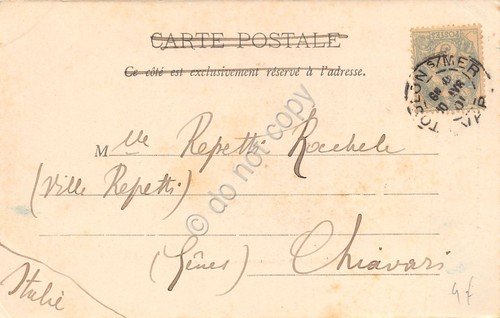 CARTE POSTALE
Ce côté est exclusivement réservé à l'adresse.
TOULON S/MER
VAR
Mlle Repetti Rachele
(Ville Repetti)
(Gênes) Chiavari
Italie
do not copy